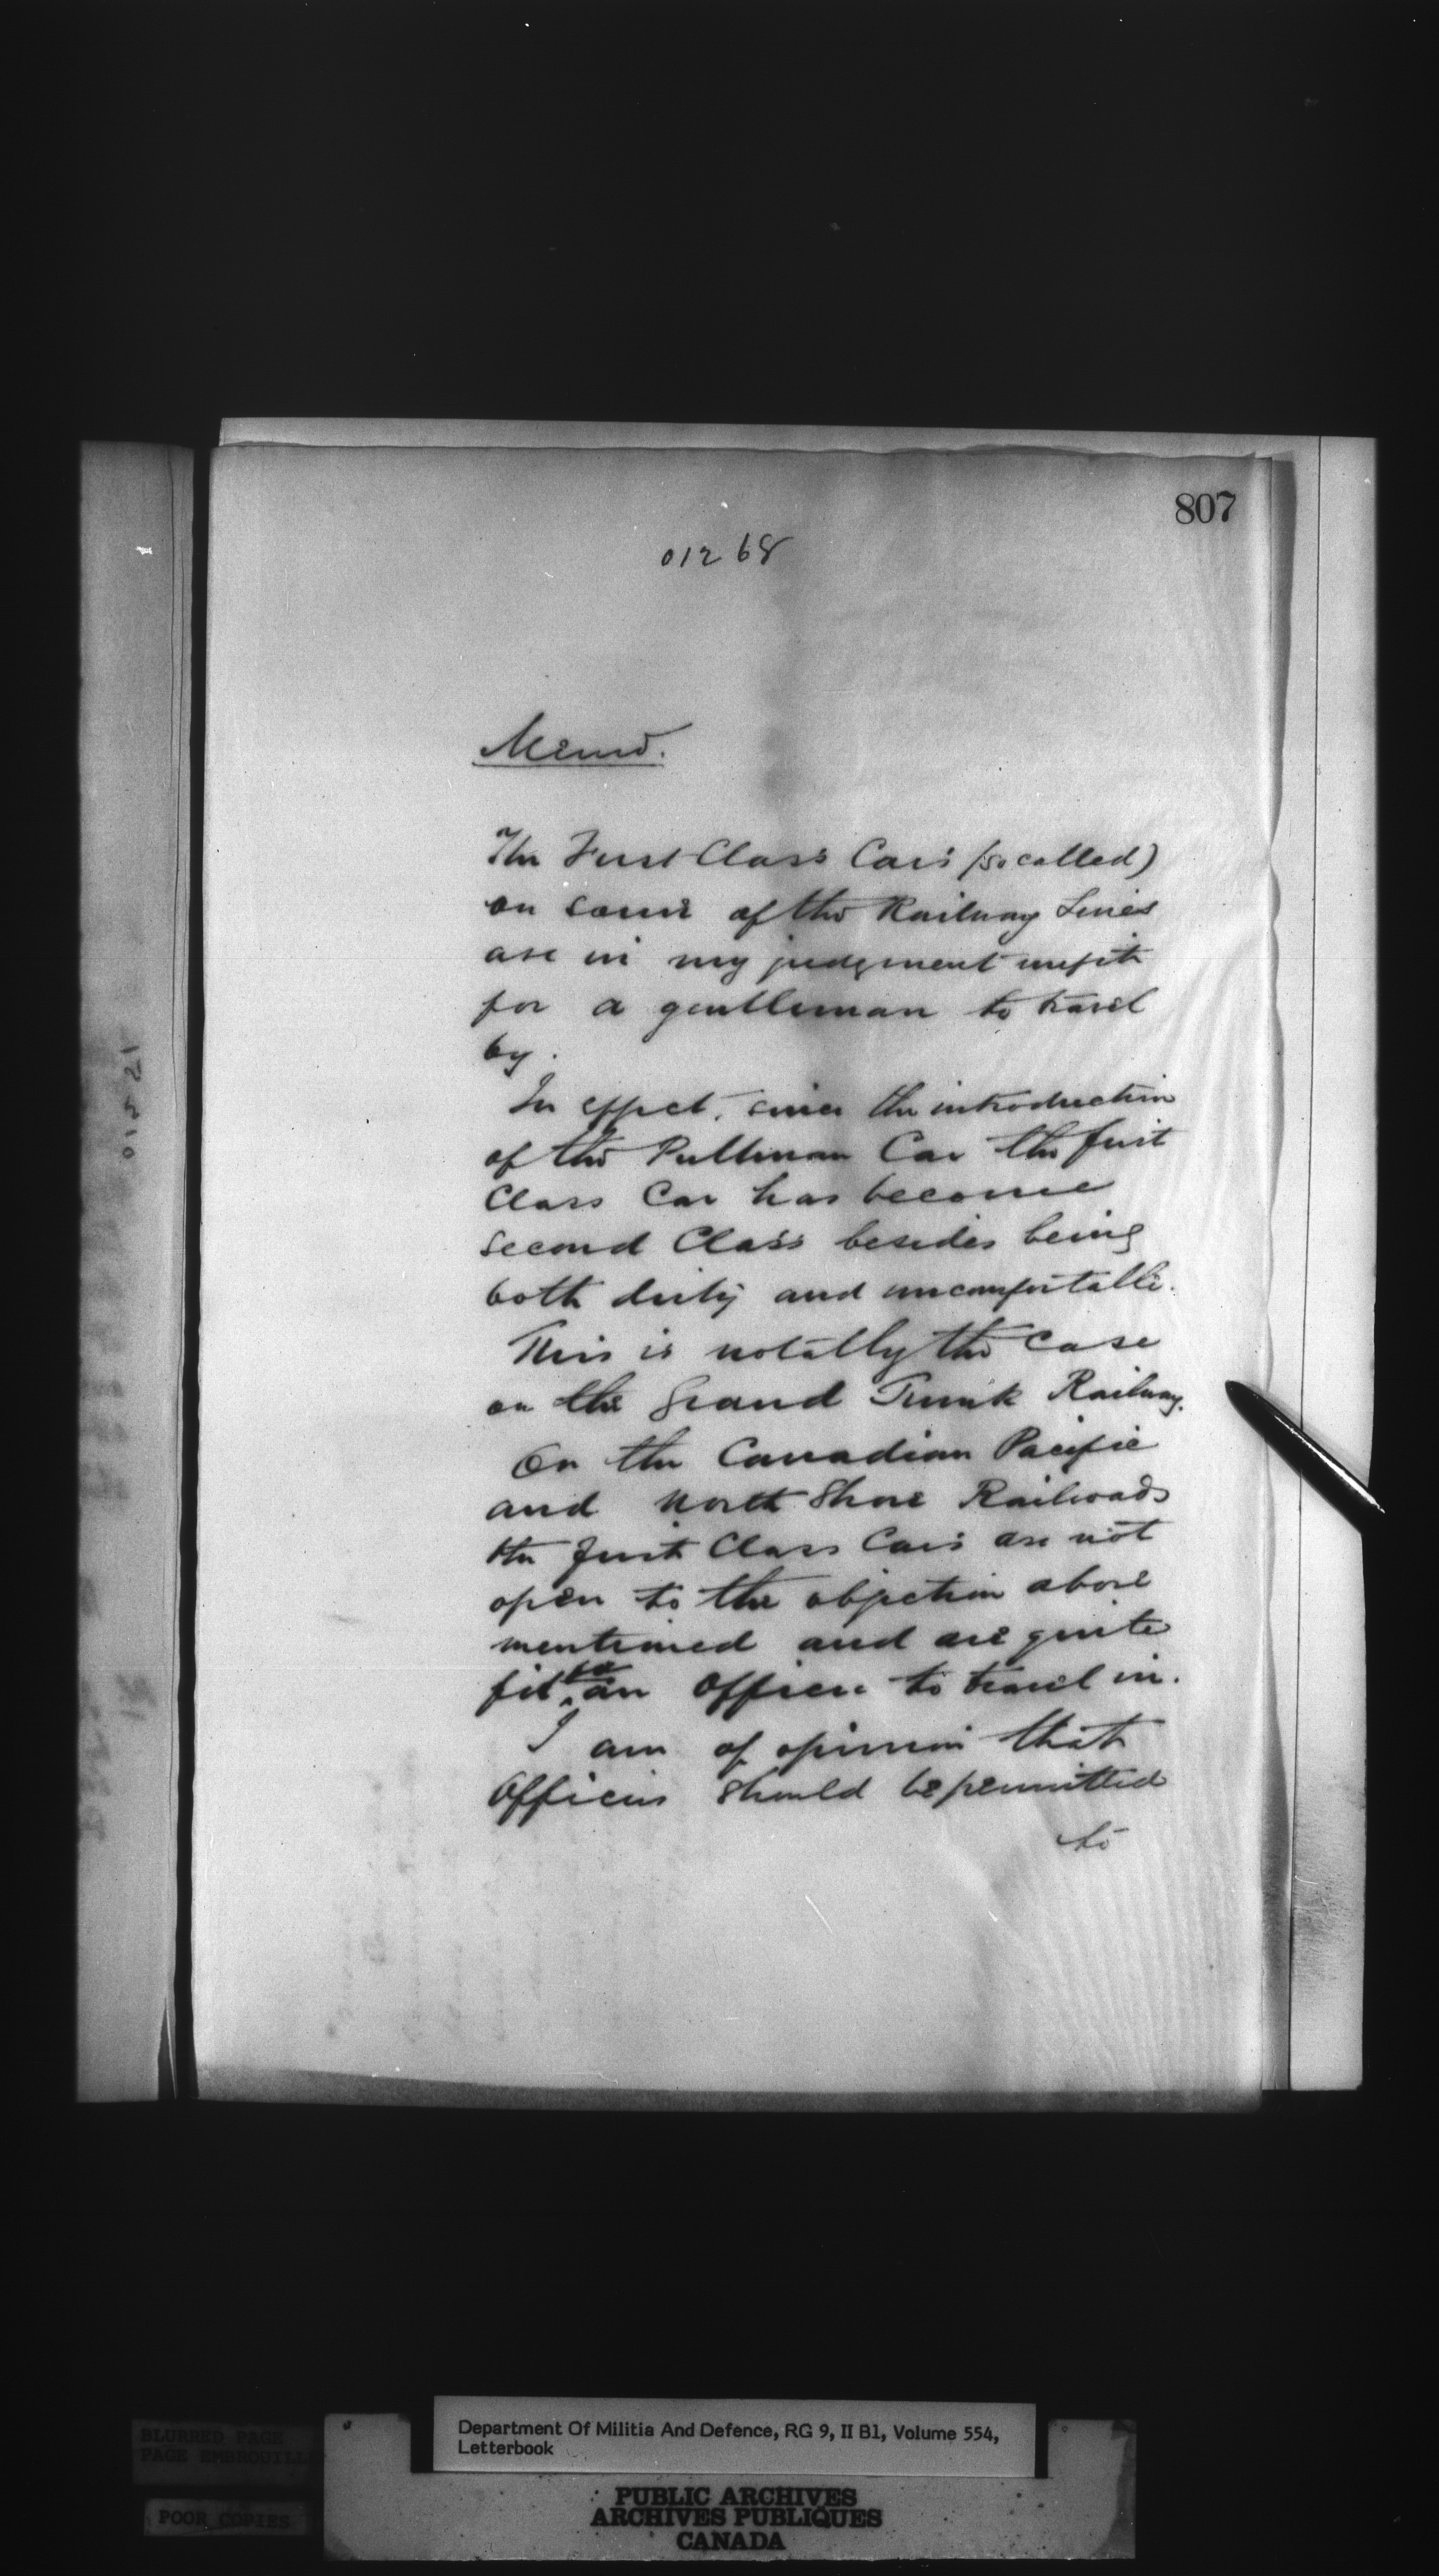 807
01268
Memo.
The First Class Cars (so called)
on some of the Railway Lines
are in my judgment unfit
for a gentleman to travel
by.
In effect, since the introduction
of the Pullman Car the first
Class Car has become
second Class besides being
both dirty and uncomfortable.
This is notably the case
on the Grand Trunk Railway.
On the Canadian Pacific
and North Shore Railroads
the first Class Cars are not
open to the objection above
mentioned and are quite
fit for an Officer to travel in.
I am of opinion that
Officers should be permitted
to
BLURRED PAGE
PAGE EMBROUILL
POOR COPIES
Department Of Militia And Defence, RG 9, II B1, Volume 554,
Letterbook
PUBLIC ARCHIVES
ARCHIVES PUBLIQUES
CANADA